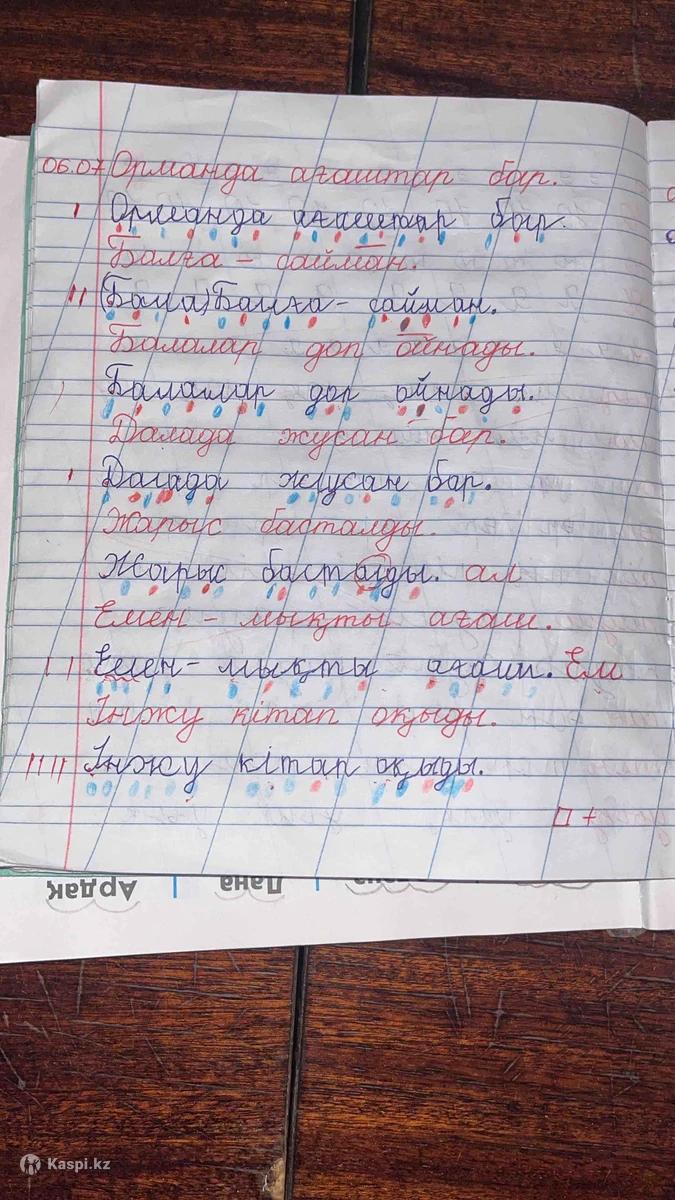 06.07 Орманда ағаштар бар.
Орманда ағаштар бар.
Балға – сайман.
(Бала) Балға – сайман.
Балалар доп ойнады.
Балалар доп ойнады.
Далада жусан бар.
Далада жусан бар.
Жарыс басталды.
Жарыс басталды. ал
Емен – мықты ағаш.
Емен – мықты ағаш. Ем
Інжу кітап оқыды.
Інжу кітап оқыды.
П +
Ардақ Дана
Kaspi.kz